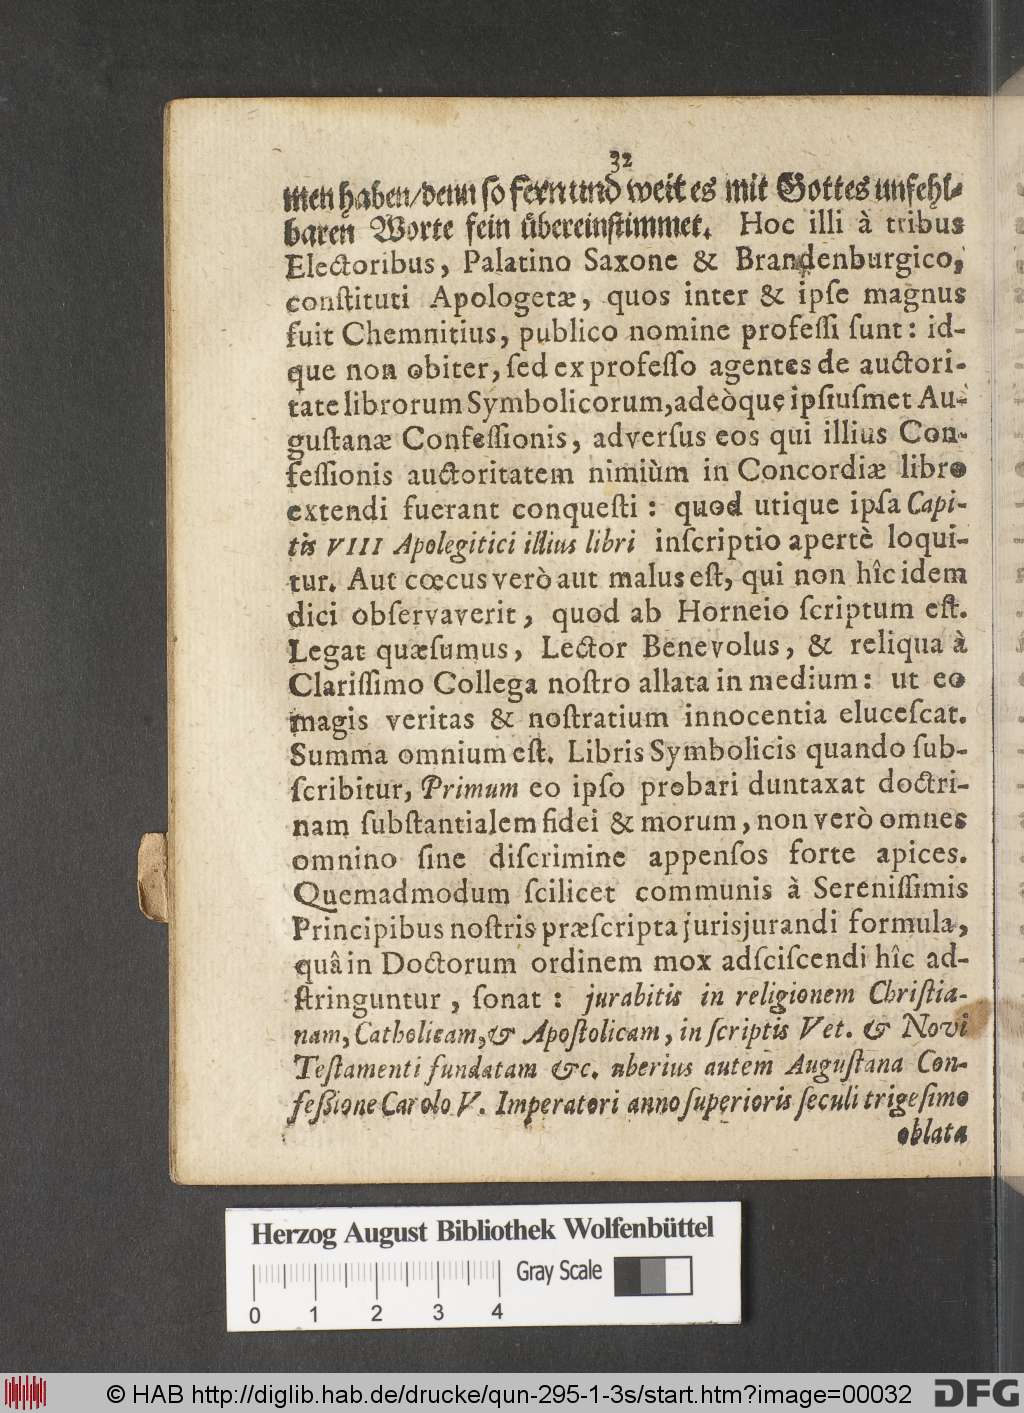 32
men haben/denn so fern und weit es mit Gottes unfehl-
baren Worte fein übereinstimmet. Hoc illi à tribus
Electoribus, Palatino Saxone & Brandenburgico,
constituti Apologetæ, quos inter & ipse magnus
fuit Chemnitius, publico nomine professi sunt: id-
que non obiter, sed ex professo agentes de auctori-
tate librorum Symbolicorum, adeòque ipsiusmet Au-
gustanæ Confessionis, adversus eos qui illius Con-
fessionis auctoritatem nimiùm in Concordiæ libro
extendi fuerant conquesti: quod utique ipsa Capi-
tis VIII Apolegitici illius libri inscriptio apertè loqui-
tur. Aut cœcus verò aut malus est, qui non hîc idem
dici observaverit, quod ab Horneio scriptum est.
Legat quæsumus, Lector Benevolus, & reliqua à
Clarissimo Collega nostro allata in medium: ut eo
magis veritas & nostratium innocentia elucescat.
Summa omnium est. Libris Symbolicis quando sub-
scribitur, Primum eo ipso probari duntaxat doctri-
nam substantialem fidei & morum, non verò omnes
omnino sine discrimine appensos forte apices.
Quemadmodum scilicet communis à Serenissimis
Principibus nostris præscripta jurisjurandi formula,
quâ in Doctorum ordinem mox adsciscendi hîc ad-
stringuntur, sonat: jurabitis in religionem Christia-
nam, Catholicam, & Apostolicam, in scriptis Vet. & Novi
Testamenti fundatam &c. uberius autem Augustana Con-
fessione Carolo V. Imperatori anno superioris seculi trigesimo
oblata
Herzog August Bibliothek Wolfenbüttel
Gray Scale
0 1 2 3 4
© HAB http://diglib.hab.de/drucke/qun-295-1-3s/start.htm?image=00032
DFG